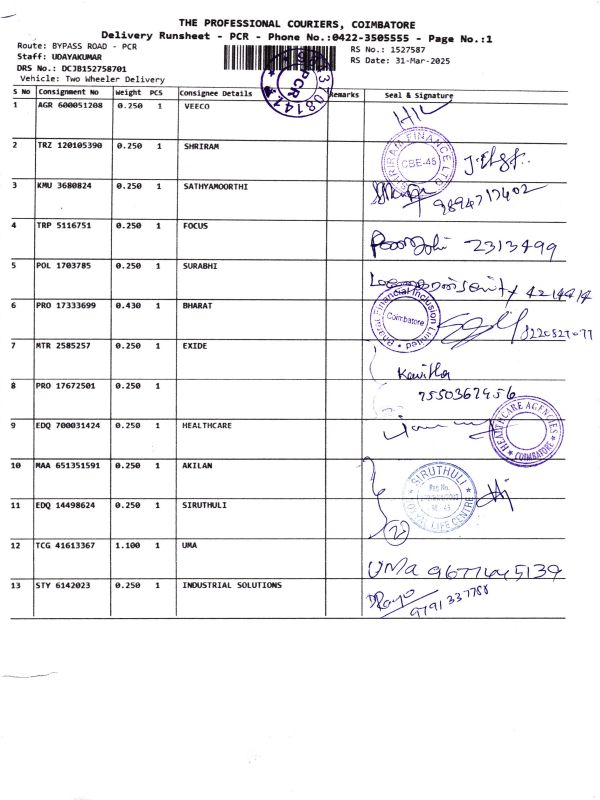 THE PROFESSIONAL COURIERS, COIMBATORE
Delivery Runsheet - PCR - Phone No.:0422-3505555 - Page No.:1
Route: BYPASS ROAD - PCR
RS No.: 1527587
Staff: UDAYAKUMAR
RS Date: 31-Mar-2025
DRS No.: DCJB152758701
Vehicle: Two Wheeler Delivery
PCR
S No Consignment No Weight PCS Consignee Details Remarks Seal & Signature
1 AGR 600051208 0.250 1 VEECO
2 TRZ 120105390 0.250 1 SHRIRAM
SHRIRAM FINANCE LTD
CBE-45
3 KMU 3680824 0.250 1 SATHYAMOORTHI
9894717402
4 TRP 5116751 0.250 1 FOCUS
2313499
5 POL 1703785 0.250 1 SURABHI
4214414
6 PRO 17333699 0.430 1 BHARAT
Bharat Financial Inclusion Limited
Coimbatore
8220527077
7 MTR 2585257 0.250 1 EXIDE
Kavitha
8 PRO 17672501 0.250 1
7550367456
9 EDQ 700031424 0.250 1 HEALTHCARE
HEALTHCARE AGENCIES
COIMBATORE
10 MAA 651351591 0.250 1 AKILAN
SIRUTHULI
Reg No.
LIFE CENTRE
11 EDQ 14498624 0.250 1 SIRUTHULI
2
12 TCG 41613367 1.100 1 UMA
UMa
13 STY 6142023 0.250 1 INDUSTRIAL SOLUTIONS
9791337788